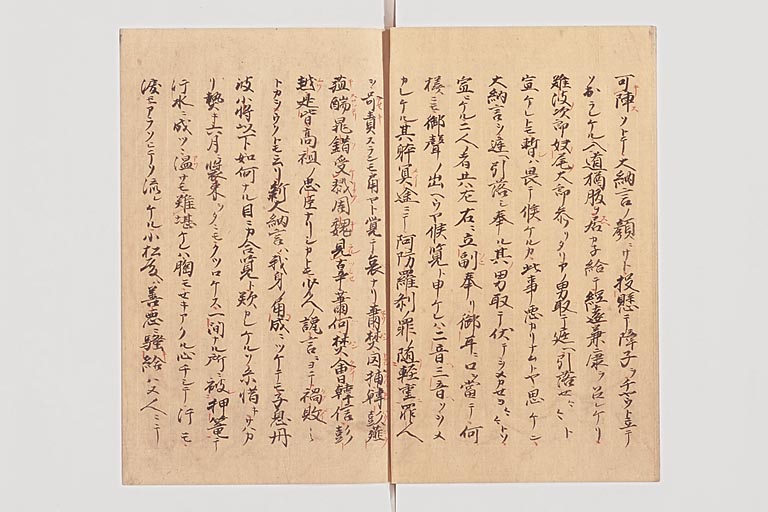 可陣ソトテ大納言ノ顔ニサト投懸テ障子ヲチヤウト立テ
ソ出ラレケル入道猶腹ヲ居カネ給テ経遠兼康ヲ召ケリ
難波次郎妹尾太郎参リタリアノ男取テ庭ヘ引落セヽト
宣ケレトモ暫ハ畏テ候ケルカ此事悪カリナムトヤ思ケン
大納言ヲ庭ヘ引落シ奉ル其男取テ伏テヲメカせヨヽヽトソ
宣ケル二人者共左右ニ立副奉リ御耳ニ口ヲ當テ何
様ニモ御聲ノ出ヘウヤ候覧ト申ケレハ二音三音ソヲメ
カレケル其躰冥途ニテ阿防羅刹ノ罪ノ随軽重罪人
ヲ呵責スランモ角ヤト覚テ哀ナリ蕭樊囚捕韓彭葅
醢晁錯受戮周魏見辜蕭何樊噲韓信彭
越是皆高祖ノ忠臣ナリシカトモ少人ノ讒言ニヨテ禍敗ニ
トカシウクトモ云リ新大納言ハ我身ノ角成ニツケテモ子息丹
波少将以下如何ナル目ニカ合覧ト歎カレケルソ糸惜キサハカ
リ熱キ六月ニ装束ヲタニモクツロケス一間ナル所ニ被押篭テ
汗水ニ成ツヽ温サモ難堪ケレハ胸モせキアクル心チシテ汗モ
涙モアラソヒテソ流レケル小松殿ハ善悪ニ騒給ハヌ人ニテ